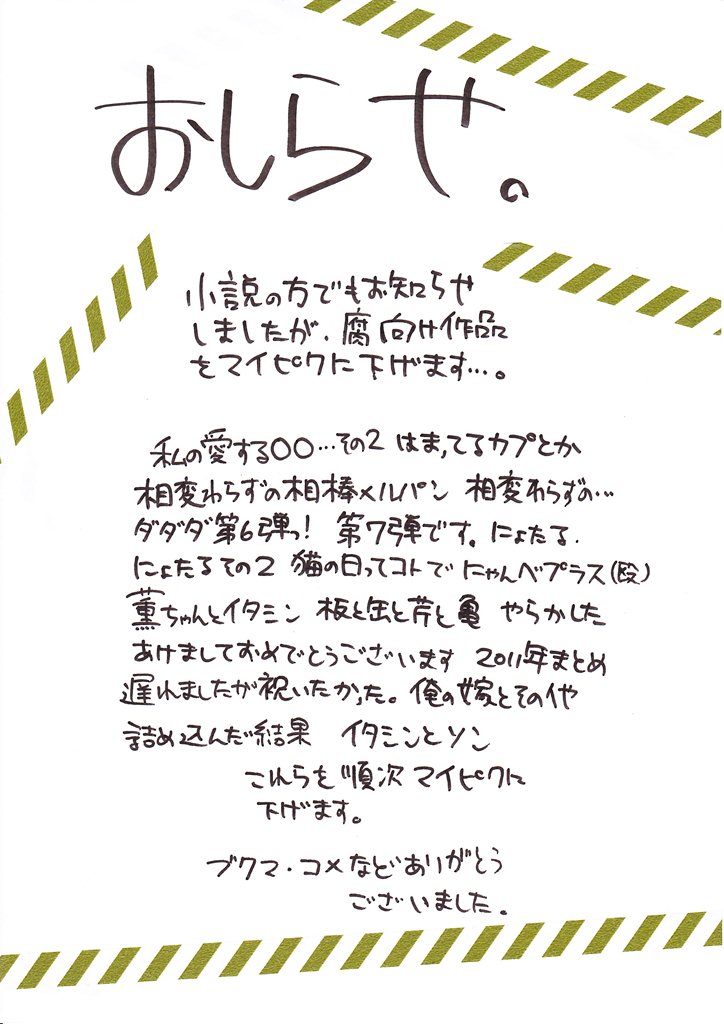 おしらせ。
小説の方でもお知らせ
しましたが、腐向け作品
をマイピクに下げます…。
私の愛する〇〇…その2 はまってるカプとか
相変わらずの相棒×ルパン 相変わらずの…
ダダダ第6弾っ! 第7弾です。にょたる.
にょたるその2 猫の日ってコトで にゃんべプラス(殴)
薫ちゃんとイタミン 板と缶と芹と亀 やらかした
あけましておめでとうございます 2011年まとめ
遅れましたが祝いたかった。俺の嫁とその他
詰め込んだ結果 イタミンとソン
これらを順次 マイピクに
下げます。
ブクマ・コメなどありがとう
ございました。